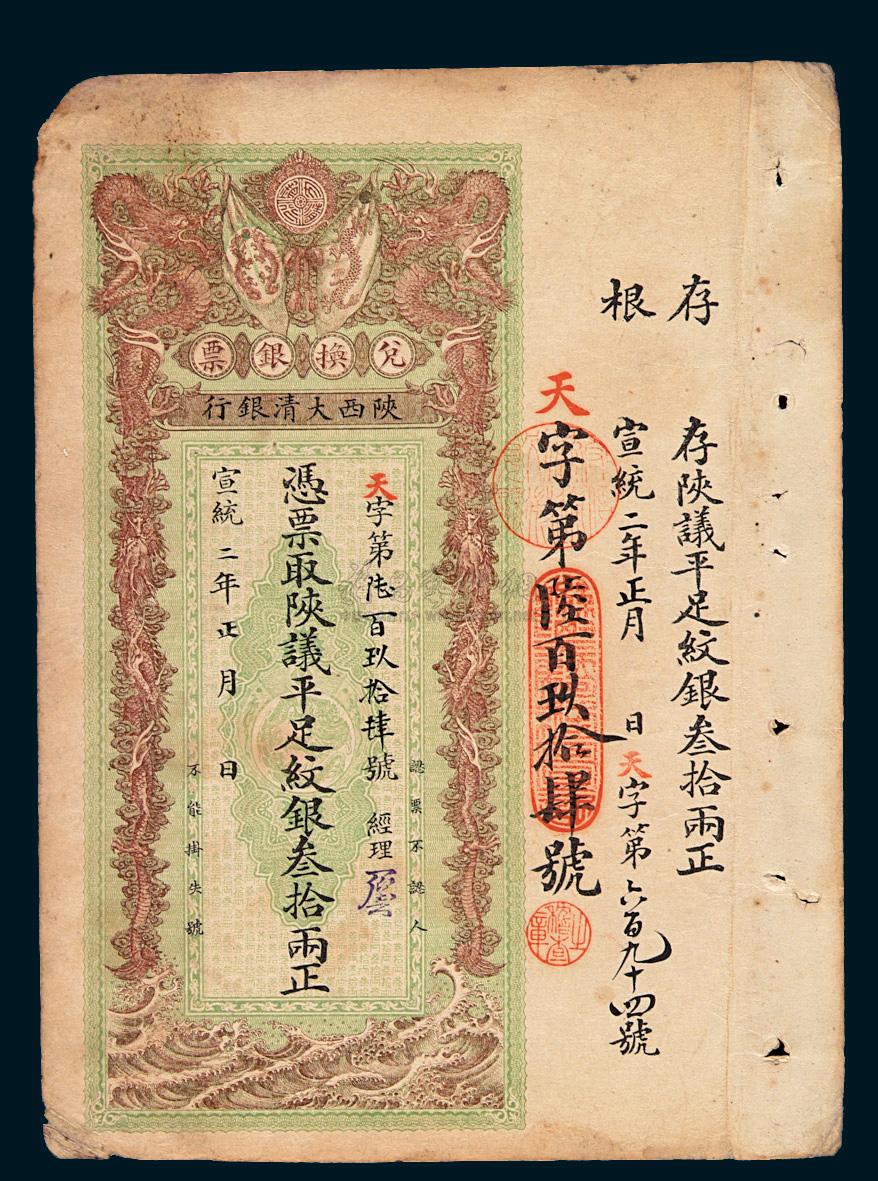 存根
存陝議平足紋銀叁拾兩正
宣統二年正月 日 天字第六百九十四號
天字第陸百玖拾肆號
稽查之章
兌換銀票
陝西大清銀行
認票不認人
天字第陸百玖拾肆號 經理
憑票取陝議平足紋銀叁拾兩正
宣統二年正月 日
不能掛失號